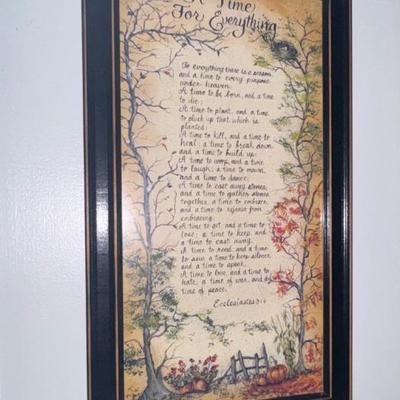 A Time
For Everything
To everything there is a season
and a time to every purpose
under heaven.
A time to be born, and a time
to die;
A time to plant, and a time
to pluck up that which is
planted;
A time to kill, and a time to
heal; a time to break down
and a time to build up;
A time to weep, and a time
to laugh; a time to mourn,
and a time to dance;
A time to cast away stones,
and a time to gather stones
together, a time to embrace,
and a time to refrain from
embracing.
A time to get and a time to
lose; a time to keep, and
a time to cast away.
A time to rend, and a time
to sew, a time to keep silence
and a time to speak,
A time to love, and a time to
hate, a time of war, and a
time of peace.
Ecclesiastes